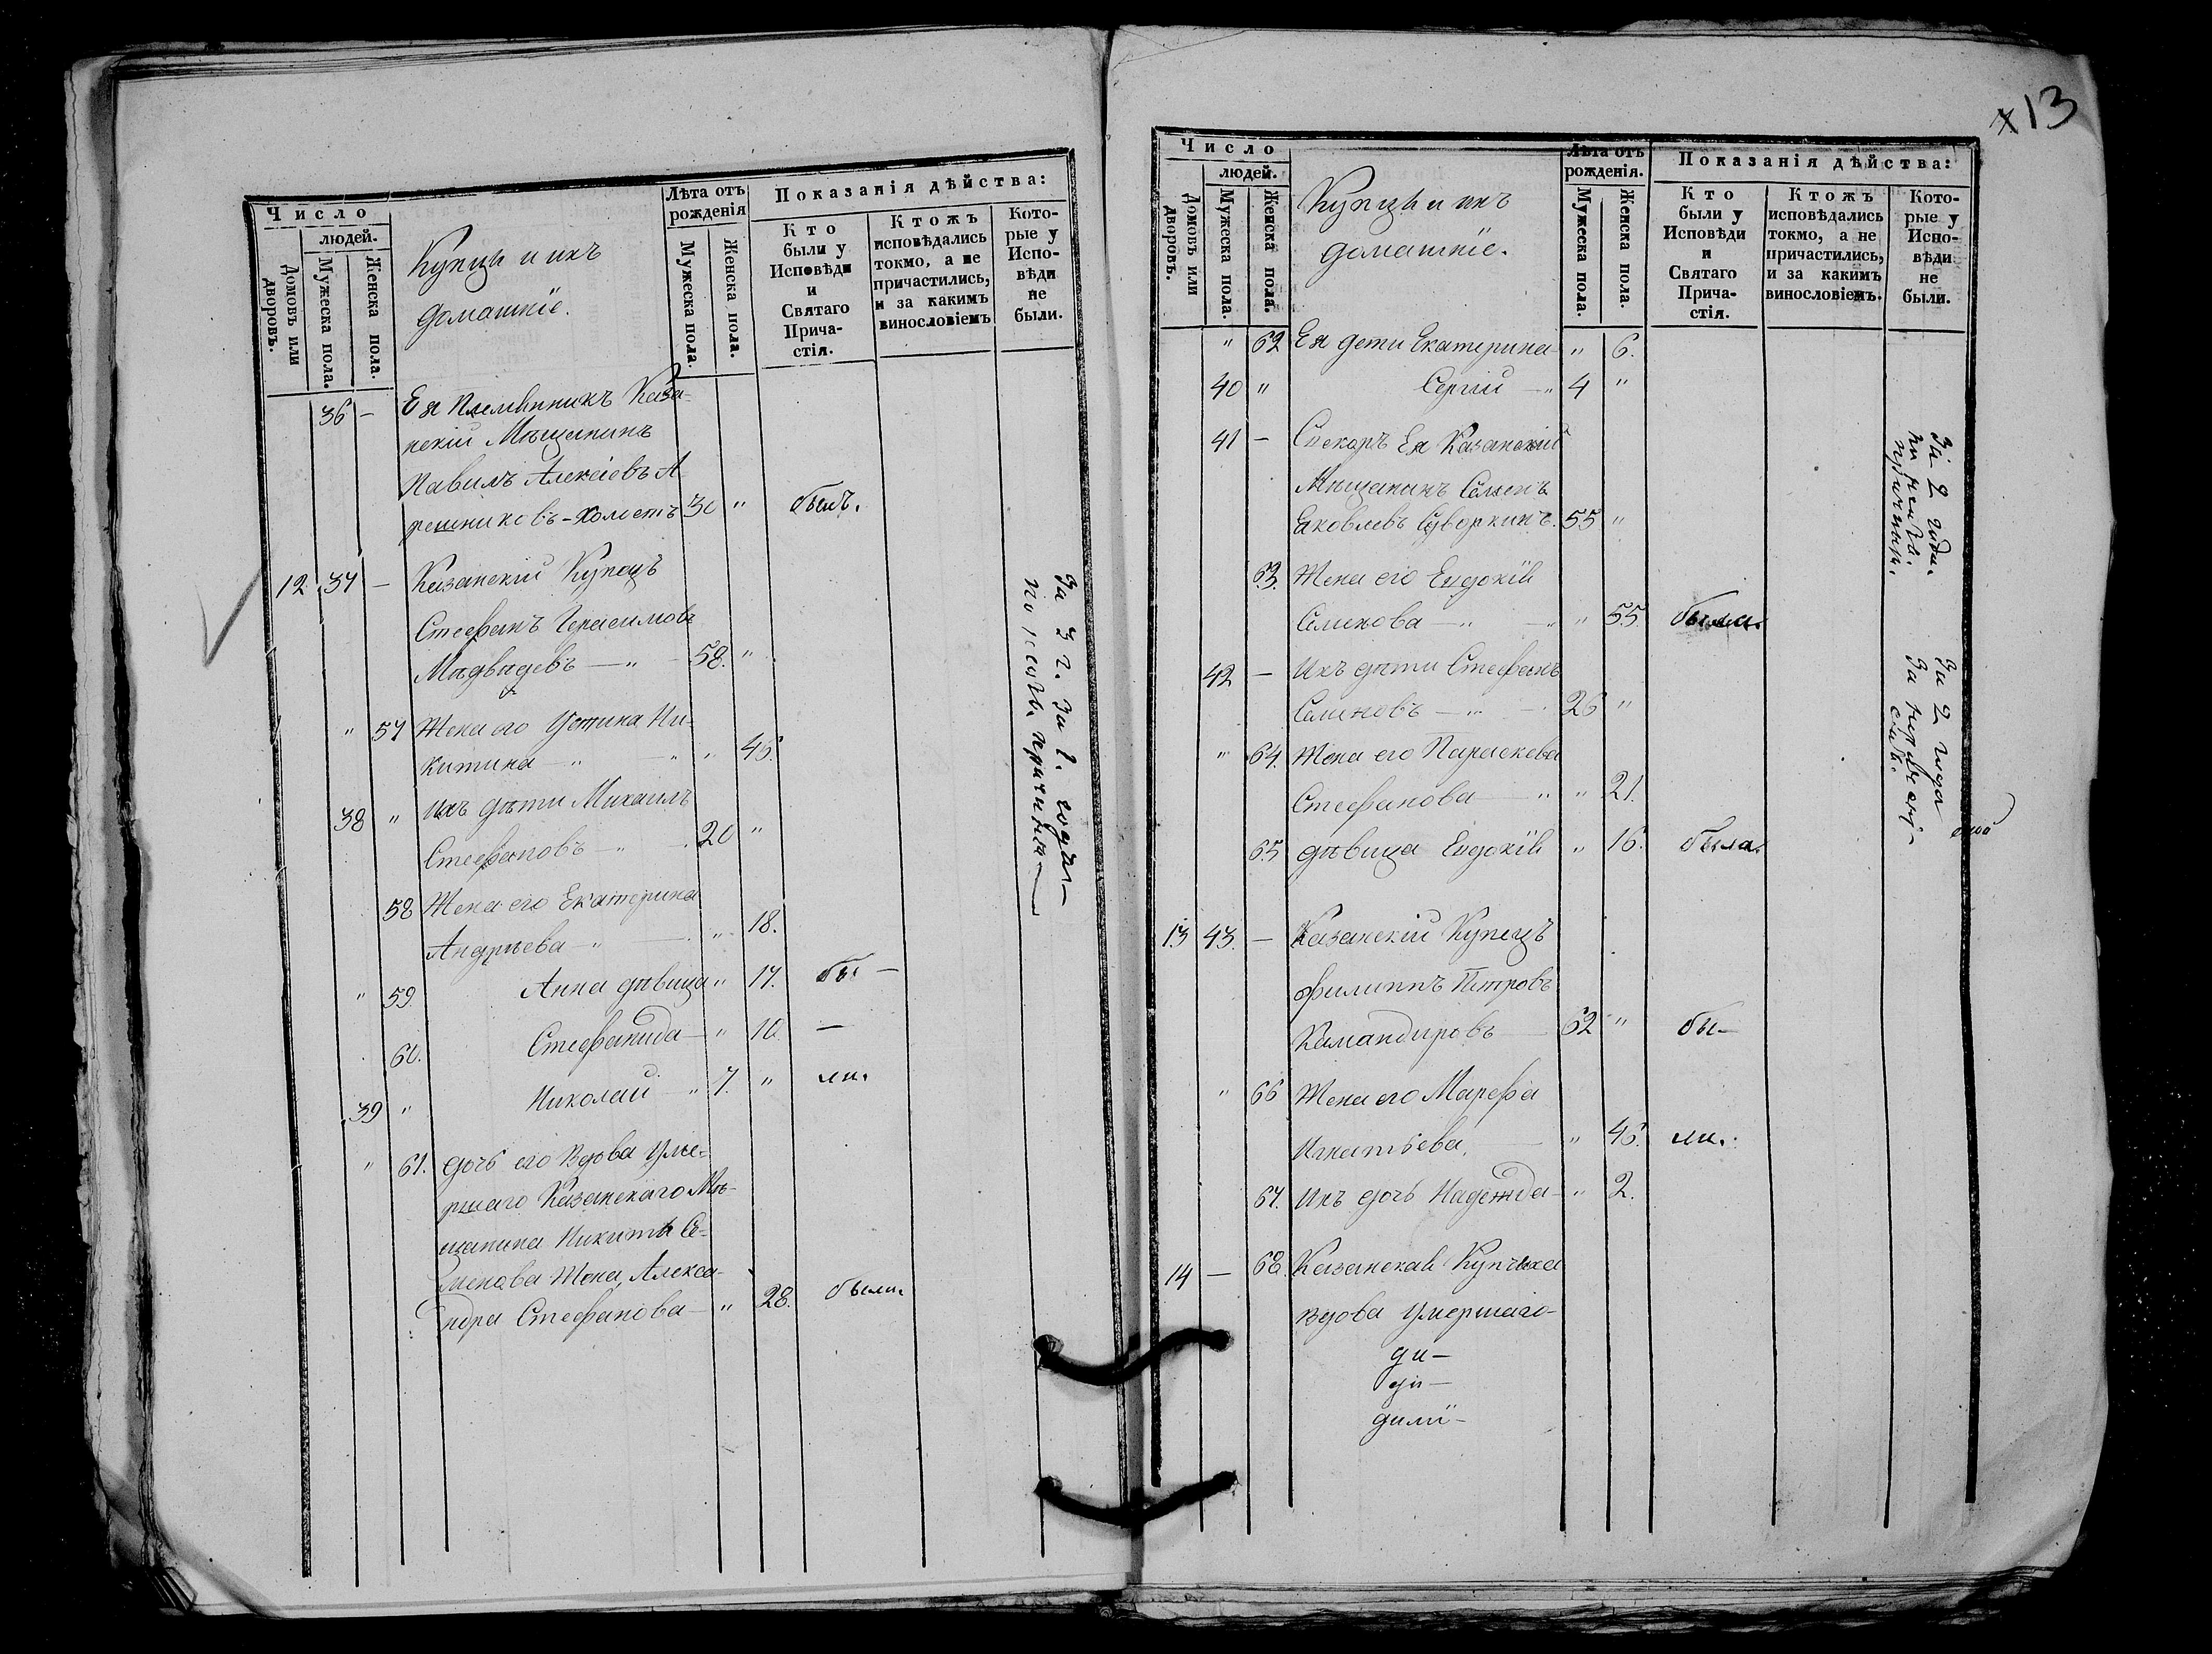 Число
людей.
Домовъ или дворовъ.
Мужеска пола.
Женска пола.
Купцы и ихъ
домашніе.
Лѣта отъ
рожденія
Мужеска пола.
Женска пола.
Показанія дѣйства:
Кто
были у
Исповѣди
и
Святаго
Прича-
стія.
Ктожъ
исповѣдались
токмо, а не
причастились,
и за какимъ
винословіемъ
Кото-
рые у
Испо-
вѣди
не
были.
36 — Ея племянникъ Каза-
нскій Мѣщанинъ
Павилъ Алексіевъ А
решниковъ-холостъ 30 " былъ.
12. 37 — Казанскій Купецъ
Стефанъ Герасимовъ
Мѣдвѣдевъ — " — 58. "
" 57 Жена его Устина Ни-
китина — " " " 45.
38 " Ихъ дѣти Михаилъ
Стефановъ — " 20 "
58 Жена его Екатерина
Андрѣева — " — " 18.
" 59. Анна дѣвица " 17. бы —
60. Стефанида — " 10. —
39 " Николай — " 7. " ли.
" 61. дочь его вдова Уме-
ршаго Казанскаго Мѣ-
щанина Никиты Се-
менова Жена, Алекса-
ндра Стефанова — " 28. были.
За 3 г. За 1. года —
по своей причинѣ —
13
Число
людей.
Домовъ или дворовъ.
Мужеска пола.
Женска пола.
Купцы и ихъ
домашніе.
Лѣта отъ
рожденія.
Мужеска пола.
Женска пола.
Показанія дѣйства:
Кто
были у
Исповѣди
и
Святаго
Прича-
стія.
Ктожъ
исповѣдались
токмо, а не
причастились,
и за какимъ
винословіемъ.
Кото-
рые у
Испо-
вѣди
не
были.
" 62 Ея дети Екатерина — " 6.
40 " Сергій — " 4 "
41 — Свекоръ Ея Казанскій
Мѣщанинъ Семенъ
Яковлевъ Суворкинъ. 55 "
63. Жена его Евдокія
Семенова — " — " " 55. была.
42 — Ихъ дѣти Стефанъ
Семеновъ — " — 26 "
" 64. Жена его Параскева
Стефанова — " " 21.
65 дѣвица Евдокія " 16. была.
За 2 года.
причини.
За 2 года
За
13 43. — Казанскій Купецъ
Филиппъ Пѣтровъ
Камандировъ — 62 " бы —
" 66 Жена его Марефа
Игнатьева, — " 45. ли.
67. Ихъ дочь Надежда — " 2.
14 — 68. Казанская Купчиха
вдова Умершаго —